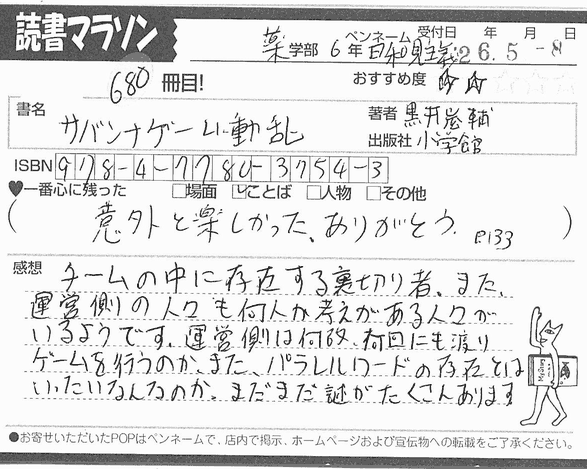 読書マラソン
ペンネーム 受付日 年 月 日
薬学部 6年 日和見主義 26.5-8
680冊目!
おすすめ度
書名
サバンナゲーム動乱
著者 黒井嵐輔
出版社 小学館
ISBN 978-4-7780-3754-3
♥一番心に残った □場面 ☑ことば □人物 □その他
(意外と楽しかった、ありがとう. P133)
感想 チームの中に存在する裏切り者。また、
運営側の人々も何人か考えがある人々が
いるようです。運営側は何故、何回にも渡り
ゲームを行うのか、また、パラレルワードの存在とは
いったいなんなのか、まだまだ謎がたくさんあります
●お寄せいただいたPOPはペンネームで、店内で掲示、ホームページおよび宣伝物への転載をご了承ください。